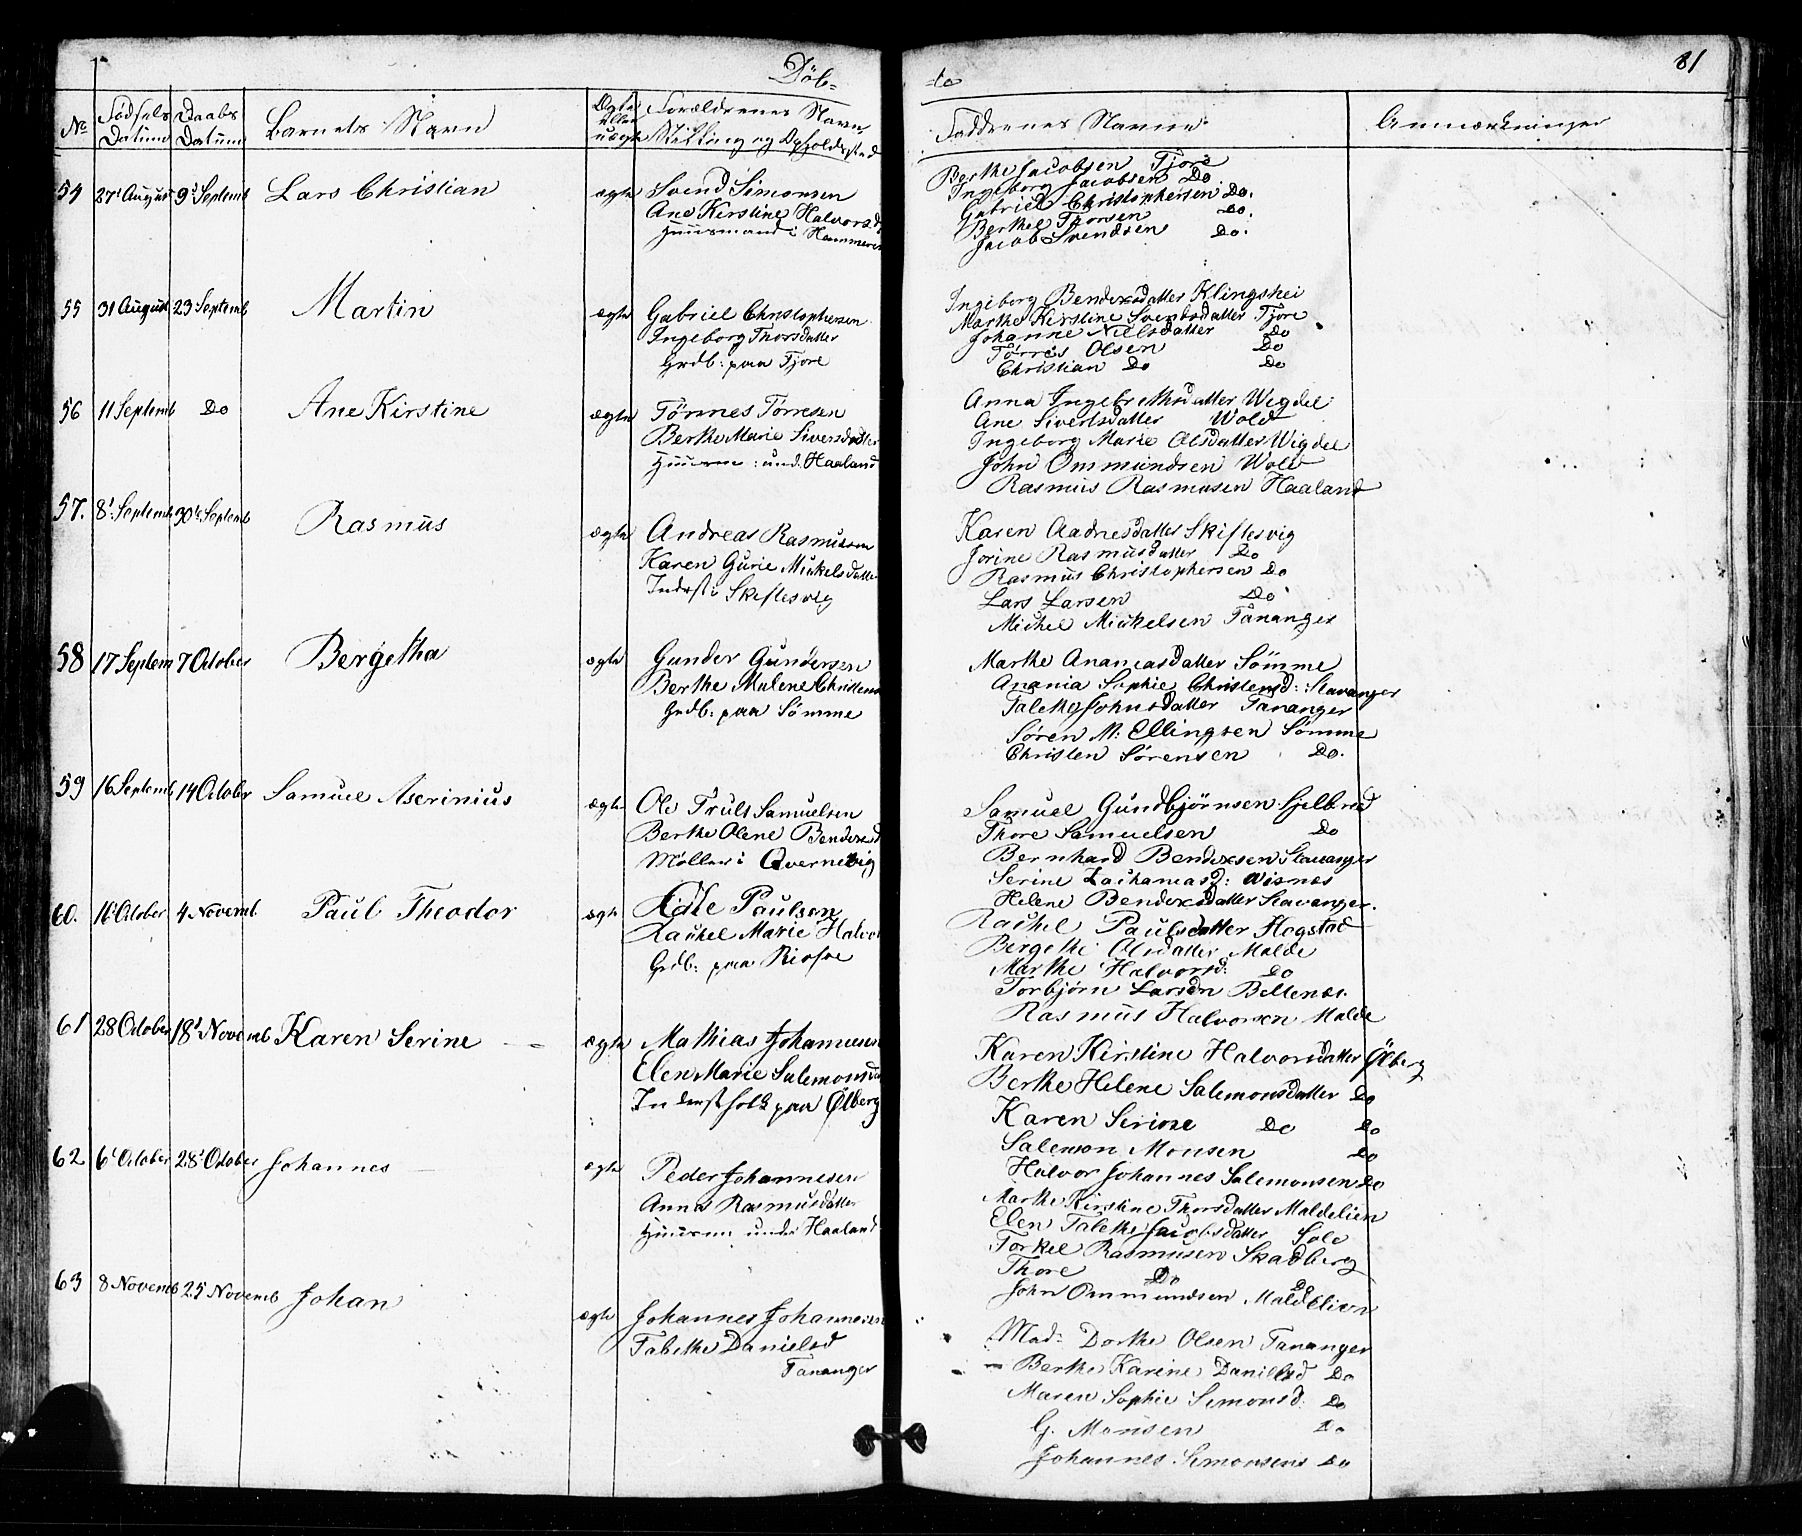 Döb-
No
Födsels Datum
Daabs Datum
Barnets Navn
Ægte eller uægte
Forældrenes Navn, Stilling og Opholdssted
54 27' August 9' Septemb Lars Christian ægte Svend Simonsen
Ane Kirstine Halvorsd
Huusmand i Hammeren
55 31 August 23 Septemb Martin ægte Gabriel Christophersen
Ingeborg Thorsdatter
Grdb: paa Tjore
56 11 Septemb Do Ane Kirstine ægte Tönnes Törresen
Berthe Marie Siversdatter
Huusm: und. Haaland
57. 8' Septemb 30' Septemb Rasmus ægte Andreas Rasmussen
Karen Gurie Mickelsdatter
Inderst i Skiftesvig
58 17 Septem 7 October Bergetha ægte Gunder Gundersen
Berthe Malene Christens
Grdb: paa Sömme
59 16 Septemb 14 October Samuel Aserinius ægte Ole Truls Samuelsen
Berthe Olene Bendixsd
Møller i Qvernevig
60. 16' October 4 Novemb. Paul Theodor ægte Paulsen
Rachel Marie Halvor
Grdb: paa
61 28 October 18' Novemb Karen Serine ægte Mathias Johannesen
Elen Marie Salemonsd
Inderstfolk paa Ølberg
62 6' October 28' October Johannes ægte Peder Johannesen
Anna Rasmusdatter
Huusm under Haaland
63 8 Novemb 25 Novemb Johan ægte Johannes Johannesen
Tabethe Danielsd
Tananger
te
81
Faddrenes Navne
Anmærkninger
Berthe Jacobsen Tjore
Ingeborg Jacobsen Do
Gabriel Christophersen Do.
Berthel Thorsen Do.
Jacob Svendsen Do.
Ingeborg Bendixsdatter Klingshei
Marthe Kirstine Svendsdatter Tjore
Johanne Nielsdatter Do
Törres Olsen Do
Christian Do Do
Anna Ingebrethsdatter Wigdel
Ane Sivertsdatter Wold
Ingeborg Marie Olsdatter Wigdel
John Ommundsen Wold
Rasmus Rasmusen Haaland
Karen Aadnesdatter Skiftesvig
Jorine Rasmusdatter Do
Rasmus Christophersen Do
Lars Larsen Do
Michel Mickelsen Tananger
Marthe Ananiasdatter Sömme
Anania Sophie Christensd: Stavanger
Talethe Johnsdatter Tananger
Søren M: Ellingsen Sömme
Christen Sörensen Do.
Samuel Gundbjörnsen Sjelbred
Thore Samuelsen Do
Bernhard Bendixsen Stavanger
Serine Zachariasd: Wisnæs
Helene Bendixsdatter Stavanger.
Rachel Paulsdatter Hogstad
Bergethe Olsdatter Malde
Marthe Halvorsd: Do
Torbjörn Larsen
Rasmus Halvorsen Malde
Karen Kirstine Halvorsdatter Ølberg
Berthe Helene Salemonsdatter Do
Karen Serine Do Do
Salemon Monsen Do
Halvor Johannes Salemonsen Do
Marthe Kirstine Thorsdatter Maldelien
Elen Talethe Jacobsdatter Sole
Torkel Rasmusen Skadberg
Thore Do Do
John Ommundsen Maldelien
Mad: Dorthe Olsen Tananger
— Berthe Karine Danielsd Do
Maren Sophie Simonsd: Do
G. Monsen Do
Johannes Simonsens Do